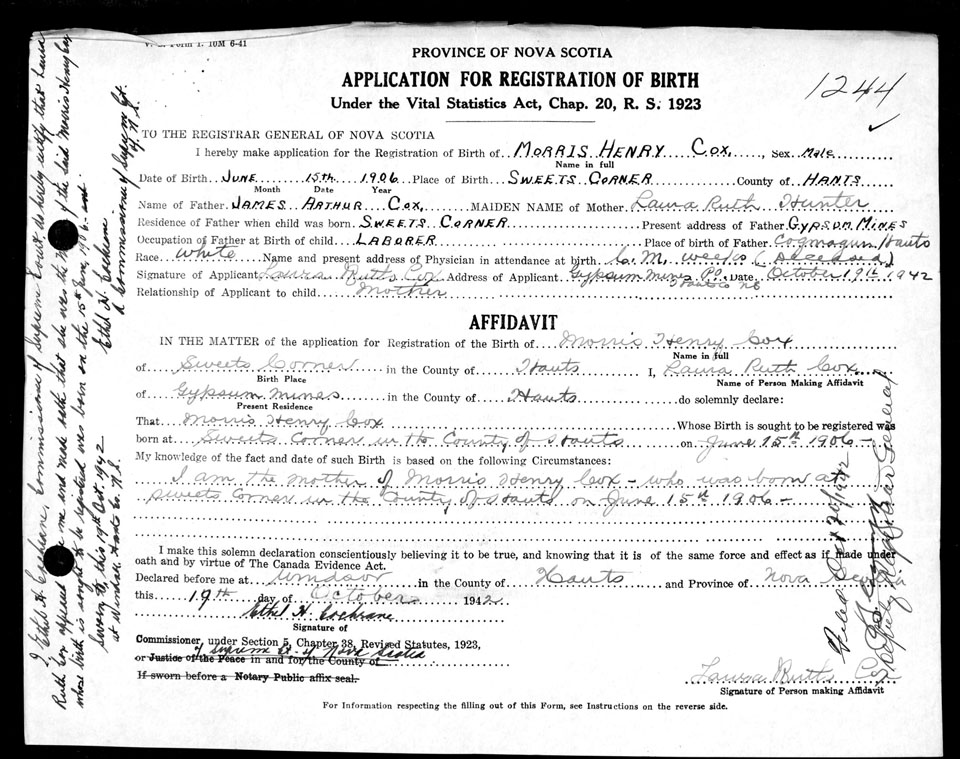 V. S. Form 1. 10M 6-41
PROVINCE OF NOVA SCOTIA
APPLICATION FOR REGISTRATION OF BIRTH
Under the Vital Statistics Act, Chap. 20, R. S. 1923
1244
TO THE REGISTRAR GENERAL OF NOVA SCOTIA
I hereby make application for the Registration of Birth of MORRIS HENRY COX, Sex Male
Name in full
Date of Birth JUNE 15TH 1906 Place of Birth SWEETS CORNER County of HANTS
Month Date Year
Name of Father JAMES ARTHUR COX, MAIDEN NAME of Mother Laura Ruth Hunter
Residence of Father when child was born SWEETS CORNER Present address of Father GYPSUM MINES
Occupation of Father at Birth of child LABORER Place of Birth of Father Cogmagun Hants
Race white Name and present address of Physician in attendance at birth C. M. weeks (Deceased)
Signature of Applicant Laura Ruth Cox Address of Applicant Gypsum mines P.O. Date October 19th 1942
Hants NS
Relationship of Applicant to child Mother
AFFIDAVIT
IN THE MATTER of the application for Registration of the Birth of Morris Henry Cox
Name in full
of Sweets Corner in the County of Hants I, Laura Ruth Cox
Birth Place Name of Person Making Affidavit
of Gypsum mines in the County of Hants do solemnly declare:
Present Residence
That Morris Henry Cox Whose Birth is sought to be registered was
born at Sweets Corner in the County of Hants on June 15th 1906 -
My knowledge of the fact and date of such Birth is based on the following Circumstances:
I am the mother of Morris Henry Cox - who was born at
sweets corner in the County of Hants on June 15th 1906 -
I make this solemn declaration conscientiously believing it to be true, and knowing that it is of the same force and effect as if made under
oath and by virtue of The Canada Evidence Act.
Declared before me at Windsor in the County of Hants and Province of Nova Scotia
this 19th day of October 1942
Ethel H. Cochrane
Signature of
Commissioner, under Section 5, Chapter 38, Revised Statutes, 1923,
of Supreme Ct. of Nova Scotia
or Justice of the Peace in and for the County of
If sworn before a Notary Public affix seal.
Laura Ruth Cox
Signature of Person making Affidavit
For Information respecting the filling out of this Form, see Instructions on the reverse side.
I Ethel H. Cochrane, Commissioner of Supreme Court do hereby certify that Laura
Ruth Cox appeared me and made oath that she was the mother of the said Morris Henry Cox
whose birth is sought to be registered was born on the 15th June, 1906. and
sworn to this 19th Oct. 1942
at Windsor Hants Co. N.S.
Ethel H. Cochrane
a Commissioner of Supreme Ct.
of N.S.
Filed Oct 20/1942
Deputy Registrar General